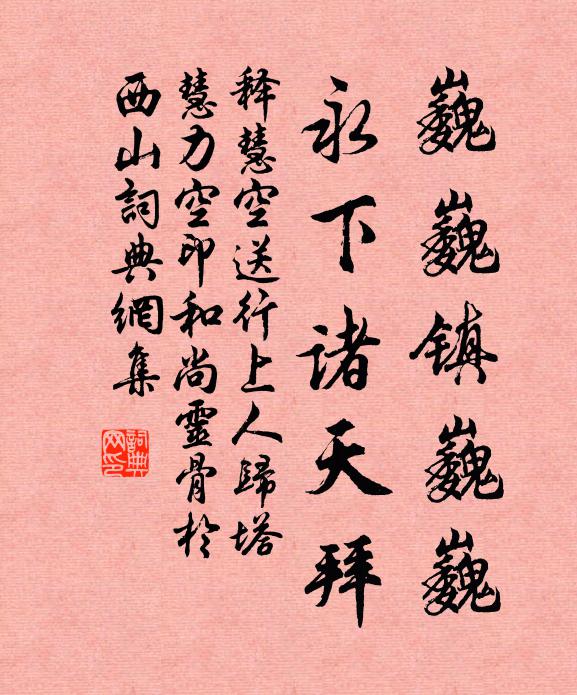 巍巍镇巍巍
永下诸天拜
释慧空送行上人歸塔
慧力空印和尚靈骨於
西山詞典網集
詞典
网印